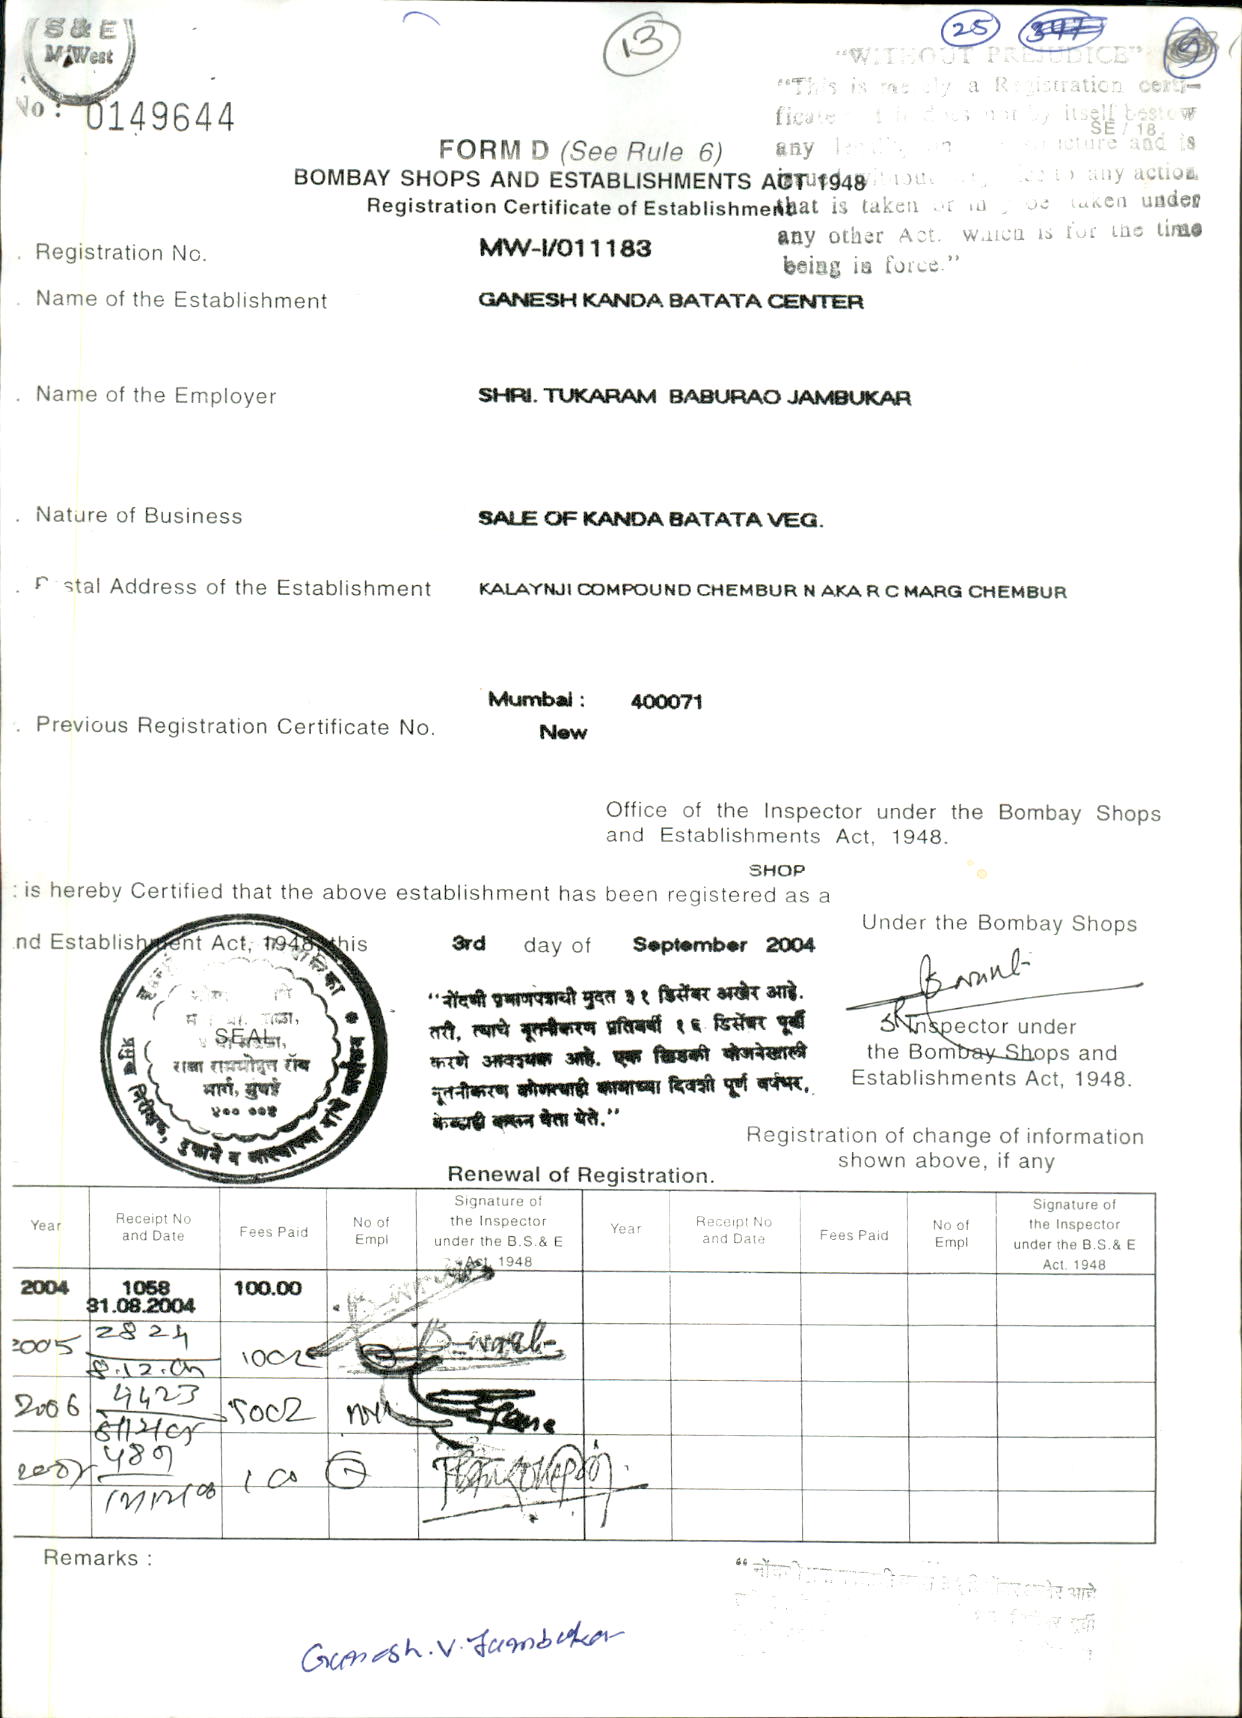 S & E
M/West
13
25
No : 0149644
"WITHOUT PREJUDICE"
"This is merely a Registration certi-
ficate it does not by itself bestow
SE / 18
any structure and is
issued without to any action
that is taken or may be taken under
any other Act. which is for the time
being in force."
FORM D (See Rule 6)
BOMBAY SHOPS AND ESTABLISHMENTS ACT 1948
Registration Certificate of Establishment
. Registration No. MW-I/011183
. Name of the Establishment GANESH KANDA BATATA CENTER
. Name of the Employer SHRI. TUKARAM BABURAO JAMBUKAR
. Nature of Business SALE OF KANDA BATATA VEG.
. Postal Address of the Establishment KALAYNJI COMPOUND CHEMBUR N AKA R C MARG CHEMBUR
Mumbai : 400071
. Previous Registration Certificate No. New
Office of the Inspector under the Bombay Shops
and Establishments Act, 1948.
SHOP
is hereby Certified that the above establishment has been registered as a
Under the Bombay Shops
nd Establishment Act, 1948, this 3rd day of September 2004
"नोंदणी प्रमाणपत्राची मुदत ३१ डिसेंबर अखेर आहे.
तरी, त्याचे नूतनीकरण प्रतिवर्षी १६ डिसेंबर पूर्वी
करणे आवश्यक आहे. एक खिडकी योजनेखाली
नूतनीकरण कोणत्याही कामाच्या दिवशी पूर्ण वर्षभर,
केव्हाही करून घेता येते."
SEAL
राजा राममोहन रॉय
मार्ग, मुंबई
४०० ००४
प्रमुख निरीक्षक, दुकाने व आस्थापना यांचे कार्यालय
Inspector under
the Bombay Shops and
Establishments Act, 1948.
Registration of change of information
shown above, if any
Renewal of Registration.
Year Receipt No and Date Fees Paid No of Empl Signature of the Inspector under the B.S.& E Act. 1948 Year Receipt No and Date Fees Paid No of Empl Signature of the Inspector under the B.S.& E Act. 1948
2004 1058 31.08.2004 100.00
2005 2824
2006 4423
100
Remarks :
Ganesh.V.Jambukar